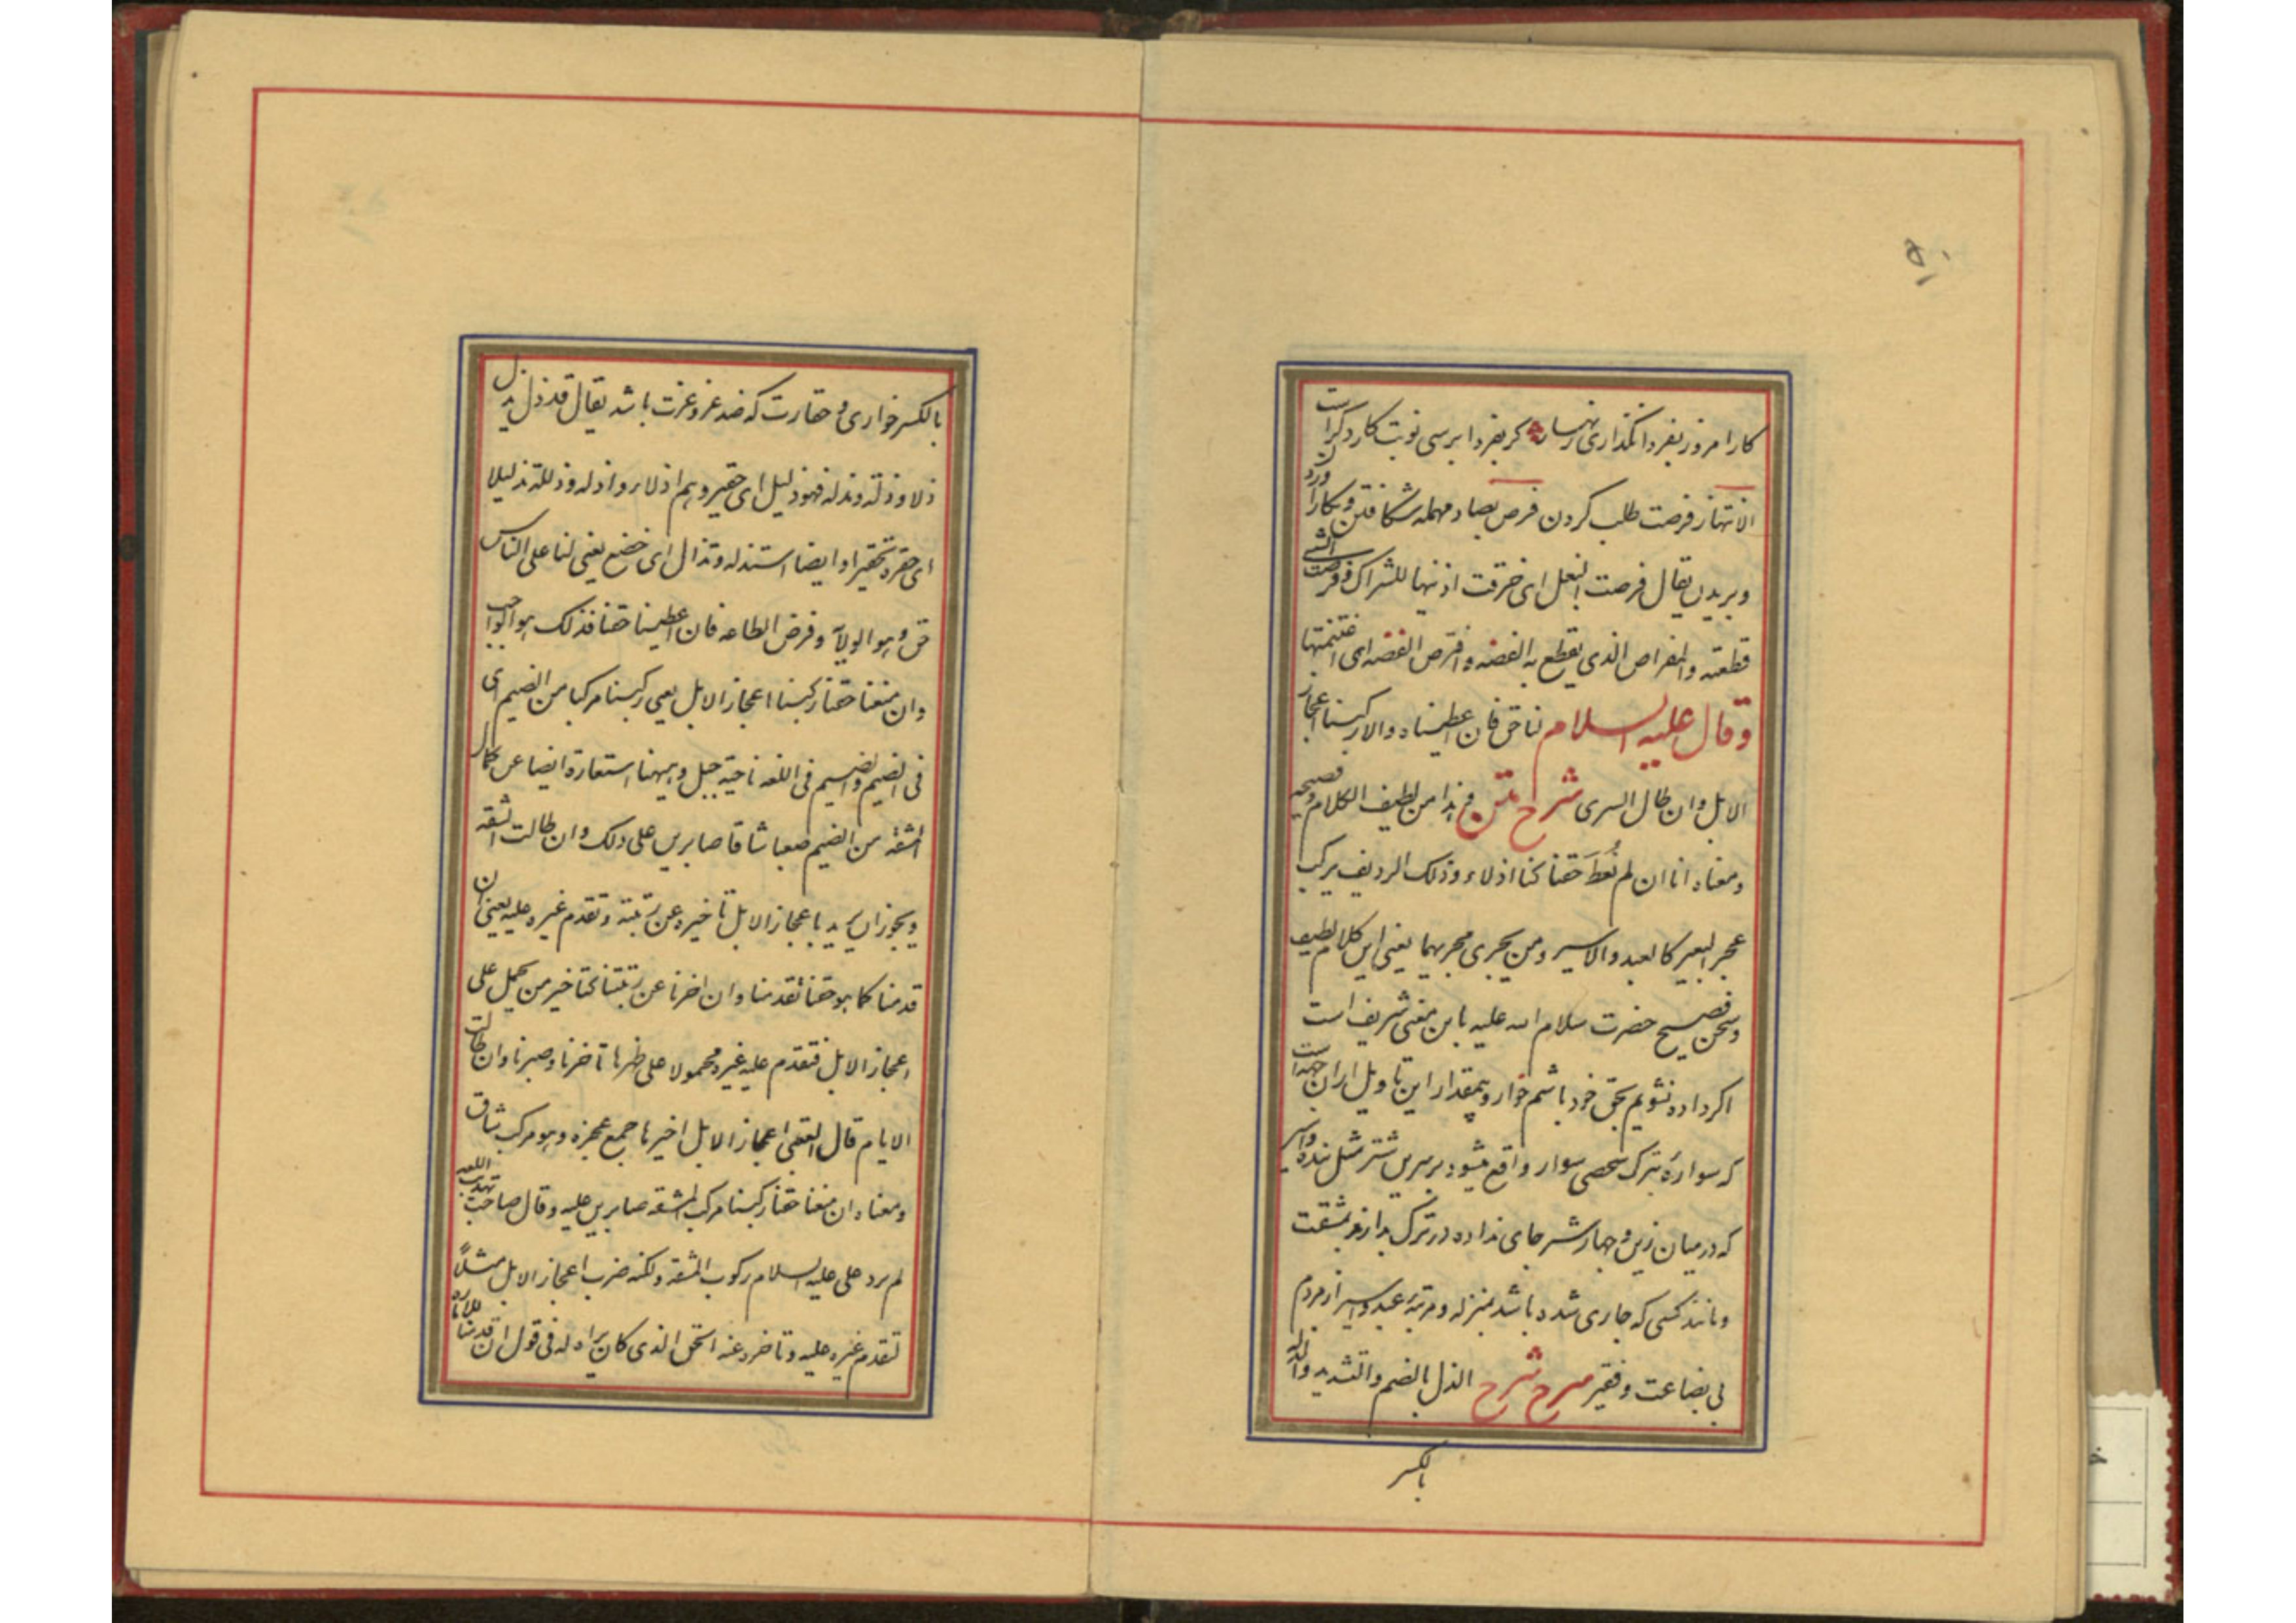 ۵۱
کار امروز بفردا نگذاری زنهار که بفردا برسی نوبت کار دگر است
الانتهاز فرصت طلب کردن فرص بصاد مهمله شکافتن و بکارد
وبریدن یقال فرصت النعل ای خرقت اذنیها للشراک وفرصت الشی
قطعته والمفراص الذی یقطع به الفضه وافترص الفضه ای اغتنمتها
وقال علیه السلام لنا حق فان اعطیناه والا رکبنا اعجاز
الابل وان طال السری شرح متن و هذا من لطیف الکلام وفصیحه
ومعناه انا ان لم نُعطَ حقنا کنا اذلاء وذلک الردیف یرکب
عجز البعیر کالعبد والاسیر ومن یجری مجریهما یعنی این کلام لطیف
وسخن فصیح حضرت سلام الله علیه باین معنی شریف است
اکر داده نشویم بحق خود باشم خوار وبیمقدار این تاویل از ان جهه است
که سواره بترک شخصی سوار واقع میشود بر سرین شتر مثل بنده واسیر
که در میان زین و جهاز شتر جای نداده در ترک بدارند بمشقت
ومانند کسی که جاری شده باشد بمنزله ومرتبه عبد واسیر از مردم
بی بضاعت وفقیر شرح شرح الذل بالضم والتشدید والذله
بالکسر
بالکسر خواری و حقارت که ضد عز وعزت باشد یقال قد ذل یذل
ذلا وذلة ومذلة فهو ذلیل ای حقیر وهم اذلاء واذله وذللته تذلیلا
ای حقرته تحقیرا وایضا استذله وتذال ای خضع یعنی لنا علی الناس
حق وهو الولایة وفرض الطاعه فان اعطینا حقنا فذلک هو الواجب
وان منعنا حقنا رکبنا اعجاز الابل یعنی رکبنا مرکبا من الضیم ای
فی الضیم والضیم فی اللغه ناحیة جبل وههنا استعارة ایضا عن کمال
المشقة من الضیم صعبا شاقا صابرین علی ذلک وان طالت الشقه
ویجوز ان یرید باعجاز الابل تاخیره عن رتبته وتقدم غیره علیه یعنی ان
قدمنا کما هو حقنا تقدمنا وان اخرنا عن رتبتنا کنا خیر من یحمل علی
اعجاز الابل فتقدم علیه غیره محمولا علی ظهرها تاخرنا وصبرنا وان طالت
الایام قال القتبی اعجاز الابل اخیرها جمع عجزه وهو مرکب شاق
ومعناه ان منعنا حقنا رکبنا مرکب المشقه صابرین علیه وقال صاحب تهذیب اللغه
لم یرد علی علیه السلام رکوب المشقه ولکنه ضرب اعجاز الابل مثلاً
لتقدم غیره علیه وتاخره عنه الحق الذی کان یراه له فی قول ان قدمنا للاماره